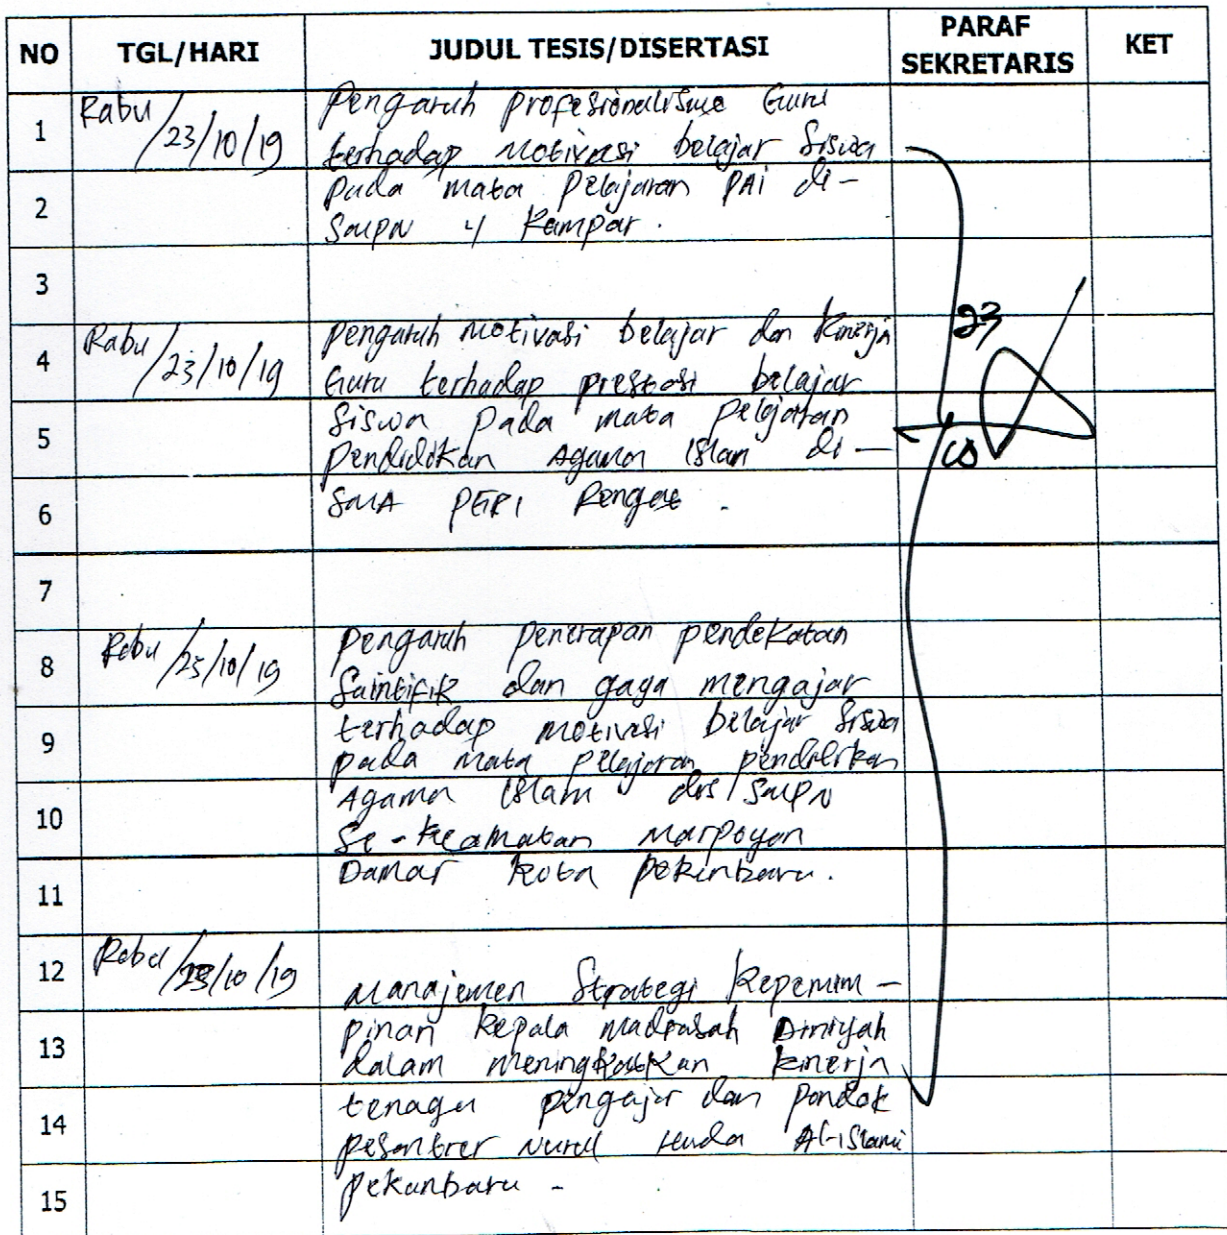 NO TGL/HARI JUDUL TESIS/DISERTASI PARAF SEKRETARIS KET
1 Rabu /23/10/19 Pengaruh profesionalisme Guru
terhadap Motivasi belajar Siswa
2 pada mata pelajaran PAI di-
SMPN 4 Kampar.
3
4 Rabu /23/10/19 pengaruh Motivasi belajar dan Kinerja
Guru terhadap prestasi belajar
5 Siswa pada mata pelajaran
pendidikan Agama Islam di -
6 SMA PGRI Rengat .
7
8 Rabu /23/10/19 pengaruh penerapan pendekatan
Saintifik dan gaya mengajar
9 terhadap motivasi belajar Siswa
pada mata pelajaran pendidikan
10 Agama Islam SMPN
Se-kecamatan Marpoyan
11 Damai Kota pekanbaru.
12 Rabu /23/10/19 Manajemen Strategi kepemim -
13 pinan kepala madrasah Diniyah
dalam meningkatkan kinerja
14 tenaga pengajar dan pondok
pesantren Nurul Huda Al-islami
15 pekanbaru -
23
10